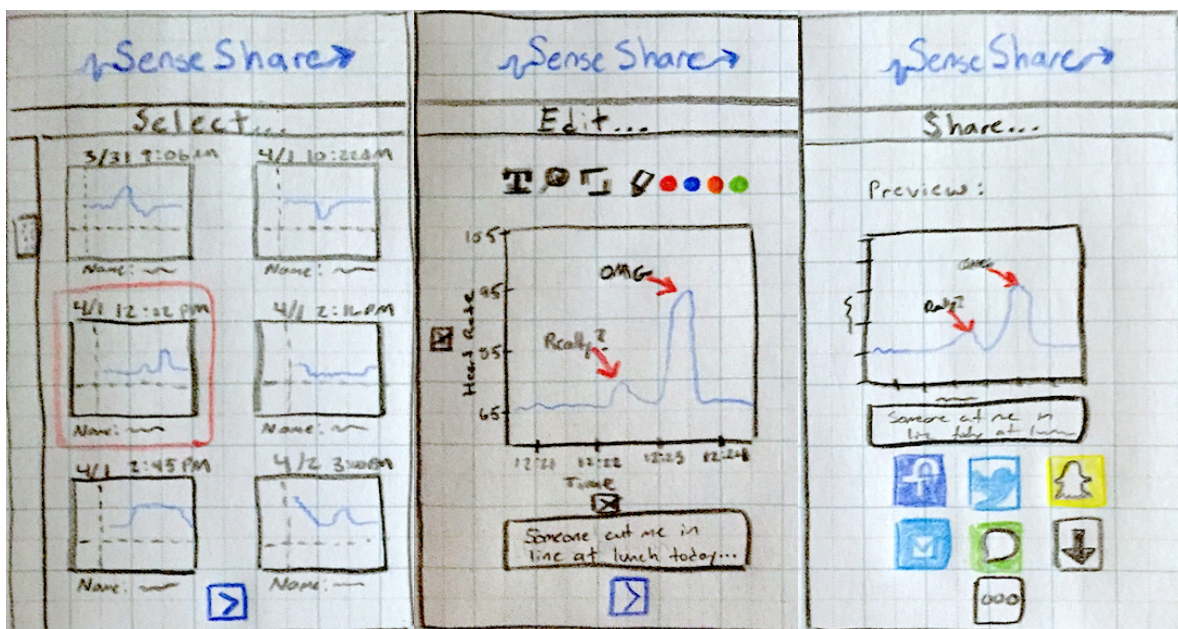 SenseShare
Select...
3/31 9:06AM
4/1 10:22AM
Name:
Name:
4/1 12:22 PM
4/1 2:16PM
Name:
Name:
4/1 2:45 PM
4/2
Name:
Name:
>
SenseShare
Edit...
T
105
OMG
95
Heart Rate
Really?
65
12:21 12:22 12:23 12:24
Time
Someone cut me in
line at lunch today...
>
SenseShare
Share...
Preview:
OMG
Really?
Someone cut me in
line today at lunch
f